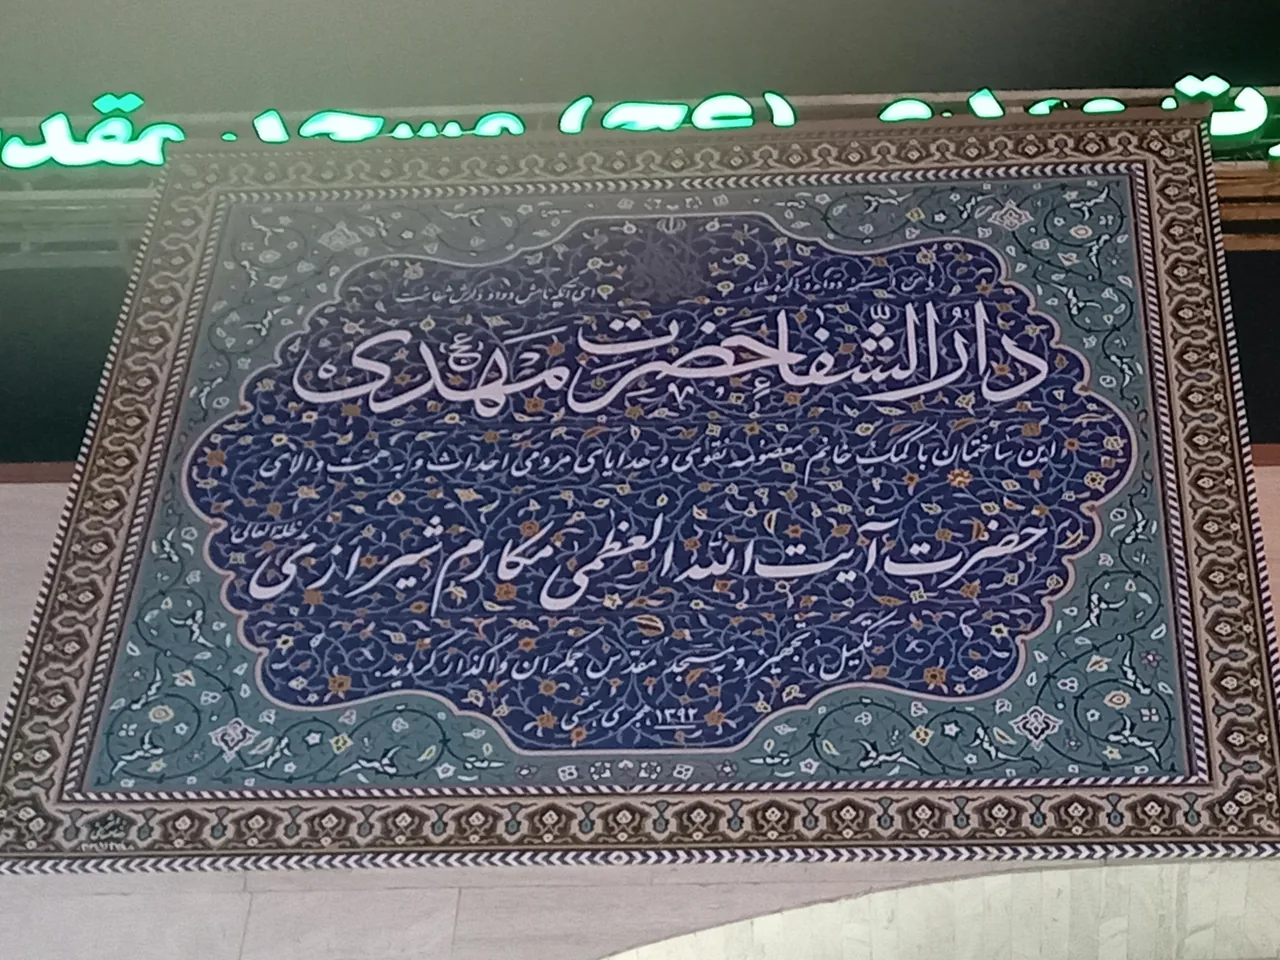 مسجد مقدس
یا من اسمه دواء و ذکره شفاء
ای آنکه نامش دوا و ذکرش شفاست
دَارُ الشّفا حَضرتِ مهدی عج
این ساختمان با کمک خانم معصومه تقوی و هدایای مردمی احداث و به همت والای
حضرت آیت الله العظمی مکارم شیرازی مدظله العالی
تکمیل، تجهیز و به مسجد مقدس جمکران واگذار گردید.
۱۳۹۲ هجری شمسی